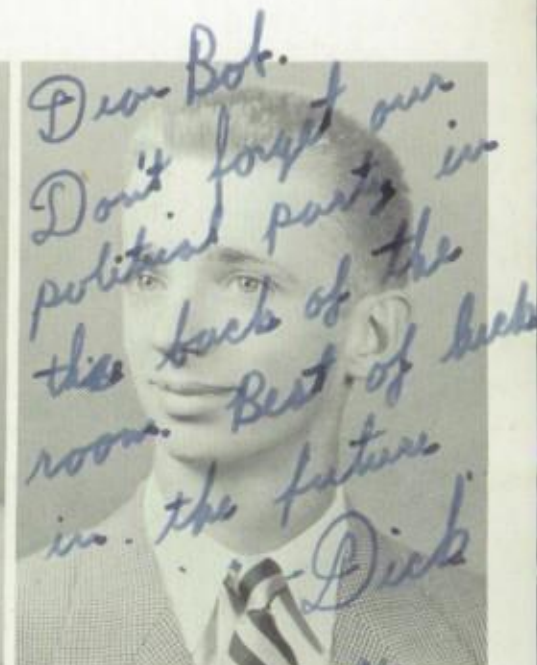 Dear Bob.
Don't forget our
political party in
the back of the
room. Best of luck
in the future
Dick